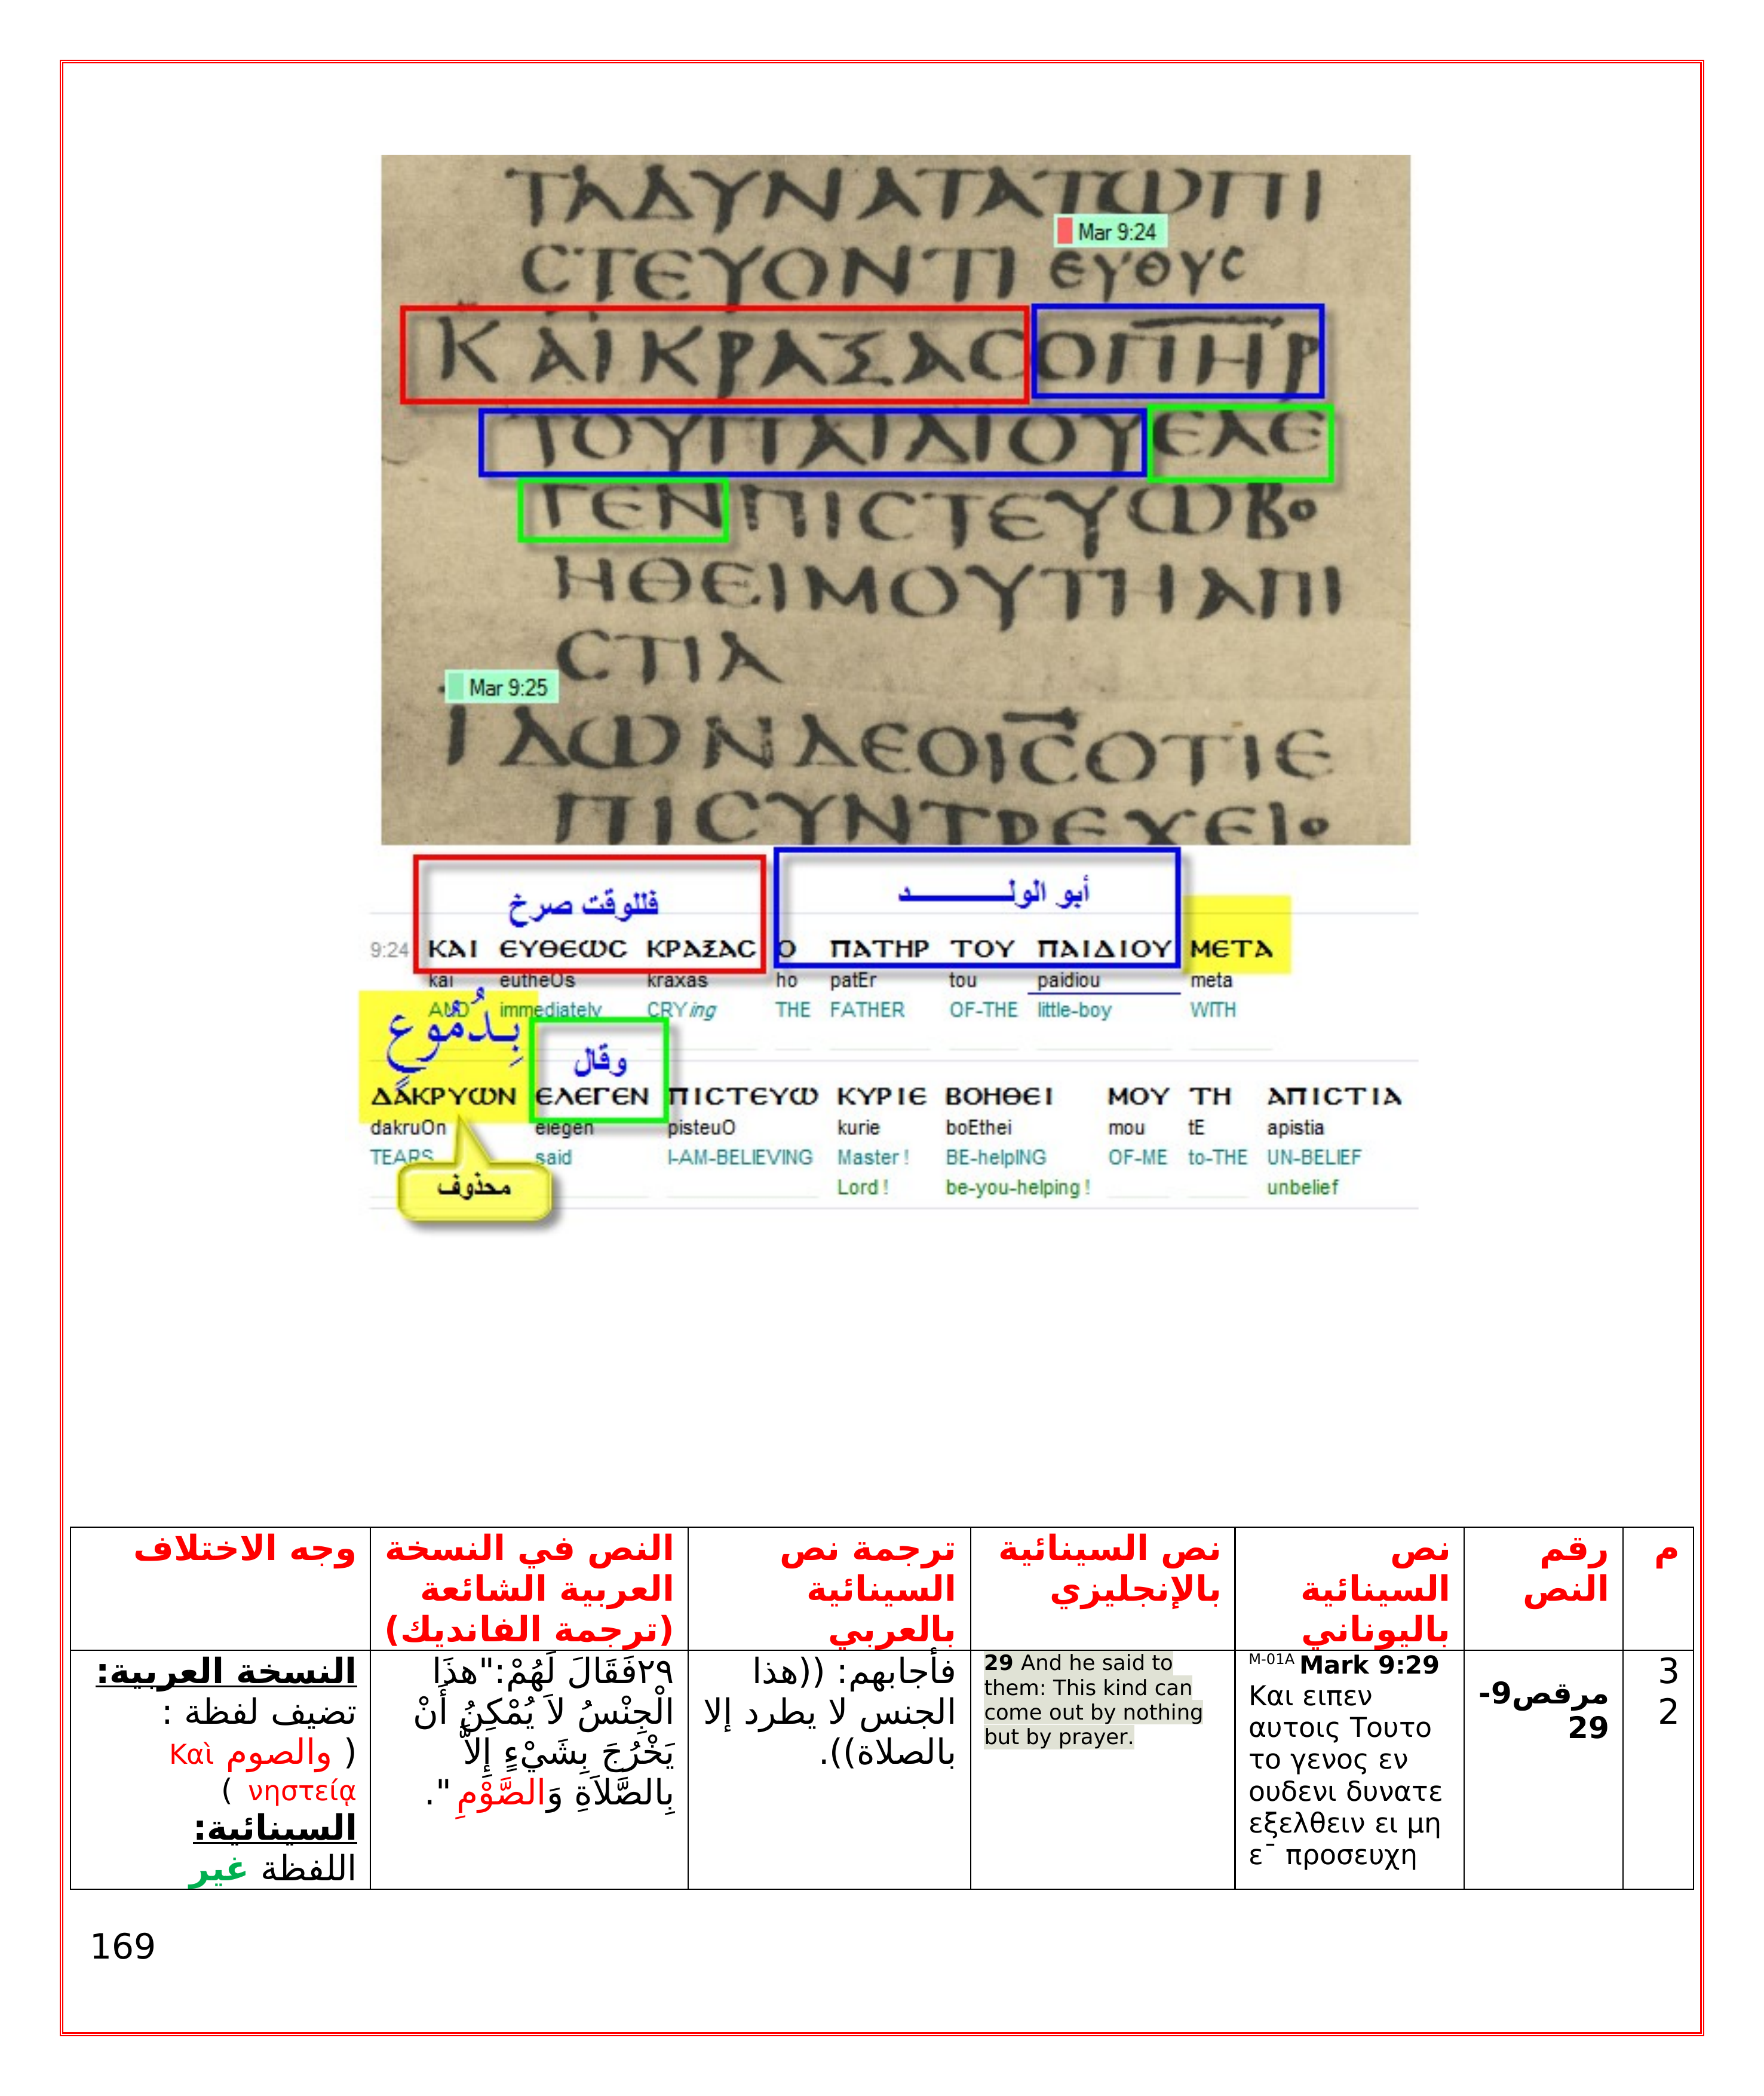 ΤΑΔΥΝΑΤΑΤΩΠΙ
Mar 9:24
CΤΕΥΟΝΤΙ ευθυς
ΚΑΙΚΡΑΣΑCΟΠΗΡ
ΤΟΥΠΑΙΔΙΟΥΕΛΕ
ΓΕΝΠΙCΤΕΥΩΒΟ
ΗΘΕΙΜΟΥΤΗΑΠΙ
CΤΙΑ
Mar 9:25
ΙΔΩΝΔΕΟΙCΟΤΙΕ
ΠΙCΥΝΤΡΕΧΕΙΟ
فللوقت صرخ
أبو الولـــــــــد
9:24 ΚΑΙ ΕΥΘΕΩC ΚΡΑΣΑC Ο ΠΑΤΗΡ ΤΟΥ ΠΑΙΔΙΟΥ ΜΕΤΑ
kai eutheOs kraxas ho patEr tou paidiou meta
AND immediately CRYing THE FATHER OF-THE little-boy WITH
بِدُمُوعٍ
وقال
ΔΑΚΡΥΩΝ ΕΛΕΓΕΝ ΠΙCΤΕΥΩ ΚΥΡΙΕ ΒΟΗΘΕΙ ΜΟΥ ΤΗ ΑΠΙCΤΙΑ
dakruOn elegen pisteuO kurie boEthei mou tE apistia
TEARS said I-AM-BELIEVING Master ! BE-helpING OF-ME to-THE UN-BELIEF
Lord ! be-you-helping ! unbelief
محذوف
م
رقم
النص
نص
السينائية
باليوناني
نص السينائية
بالإنجليزي
ترجمة نص
السينائية
بالعربي
النص في النسخة
العربية الشائعة
(ترجمة الفانديك)
وجه الاختلاف
3
2
مرقص9-
29
M-01A Mark 9:29
Και ειπεν
αυτοις Τουτο
το γενος εν
ουδενι δυνατε
εξελθειν ει μη
ε¯ προσευχη
29 And he said to
them: This kind can
come out by nothing
but by prayer.
فأجابهم: ((هذا
الجنس لا يطرد إلا
بالصلاة)).
٢٩فَقَالَ لَهُمْ:"هذَا
الْجِنْسُ لاَ يُمْكِنُ أَنْ
يَخْرُجَ بِشَيْءٍ إِلاَّ
بِالصَّلاَةِ وَالصَّوْمِ ".
النسخة العربية:
تضيف لفظة :
( والصوم Καὶ
νηστείᾳ )
السينائية:
اللفظة غير
169